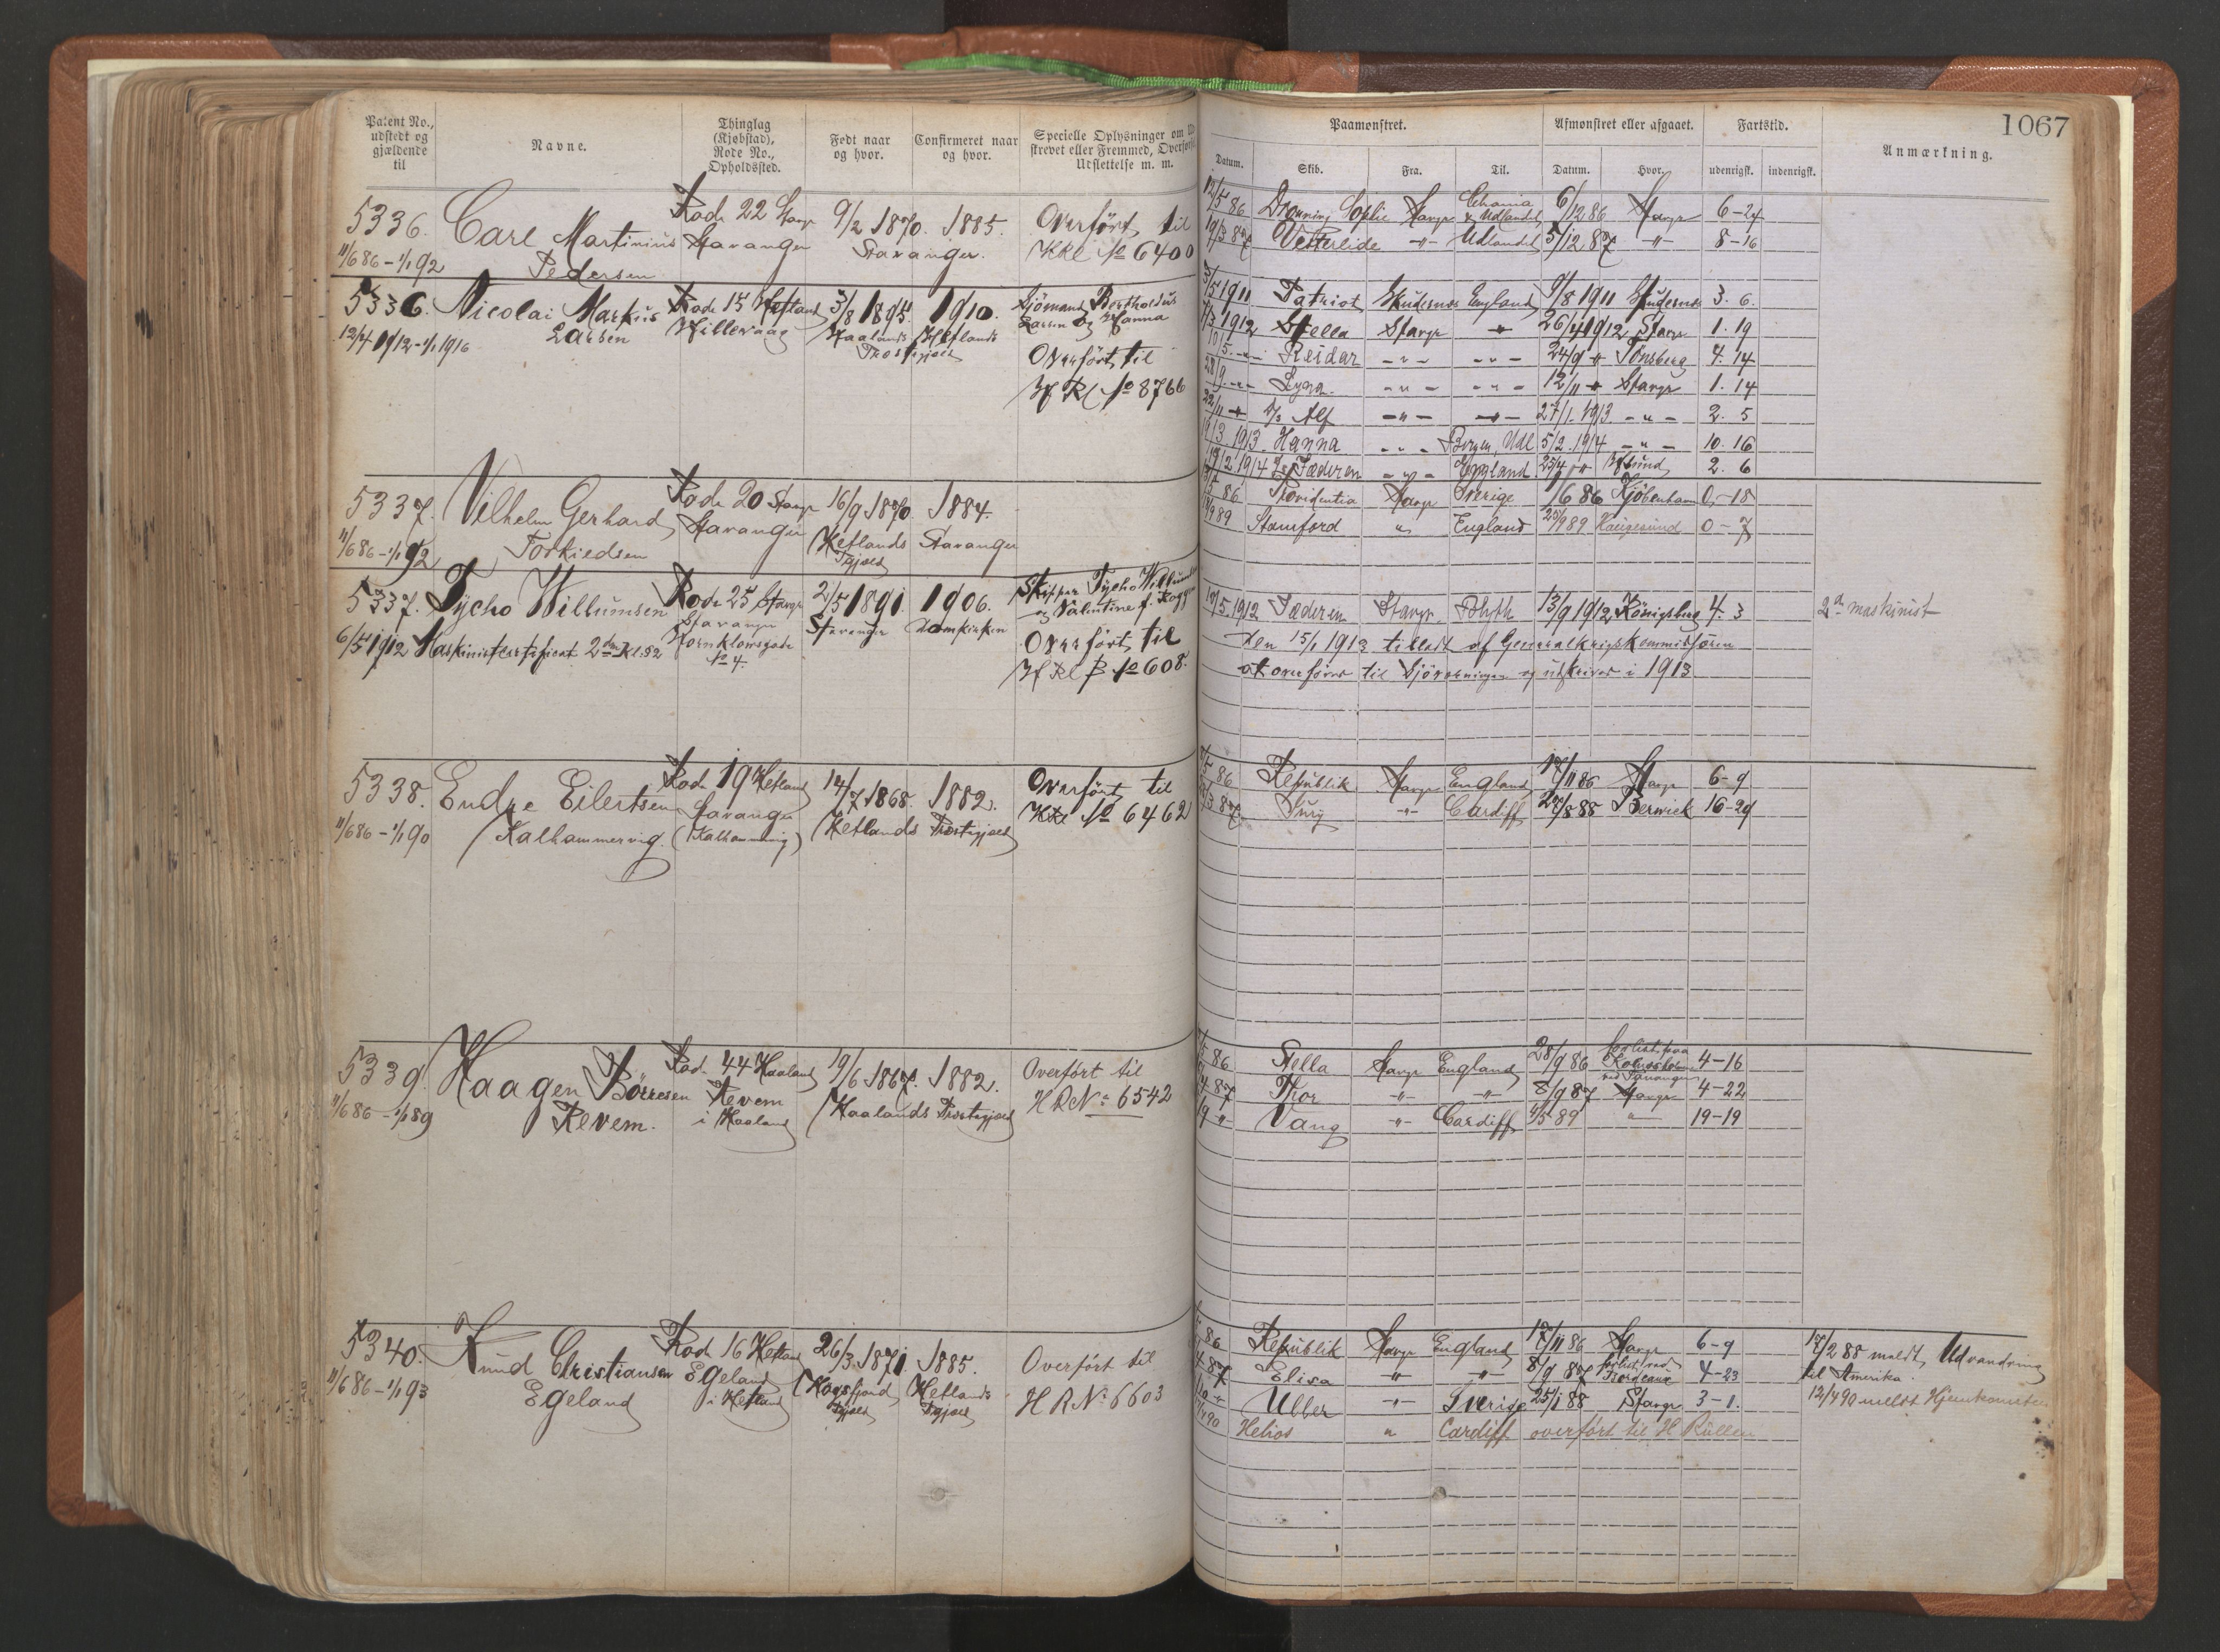 1067
Patent No., udstedt og gjældende til
Navne.
Thinglag (Kjøbstad), Rode No., Opholdssted.
Født naar og hvor.
Confirmeret naar og hvor.
Specielle Oplysninger om
strevet eller Fremmed, Overført
Udslettelse m. m.
Paamønstret.
Afmønstret eller afgaaet.
Fartstid.
Anmærkning.
Datum. Skib. Fra. Til. Datum. Hvor. udenrigsk. indenrigsk.
5336. Carl Martinius Rode 22 Stavgr 9/2 1870. 1885. Overført til
11/6 86 - 1/1 92 Pedersen Stavanger Stavanger. No 6400
12/5 86 Sophie Stavgr & Udlandet 6/12 86 Stavgr 6-24
19/3 87 Vesterlide -"- Udlandet 5/12 87 -"- 8-16
5336. Nicolai Markus Rode 15 Hetland 3/8 1895. 1910. Sjömand Bertholdus
12/4 1912 - 1/1 1916 Larsen Hillevaag Haalands Hetlands Larsen og Hanna
Prostgjæld Overført til
No 8766
3/5 1911 Patriot Skudesnes England 9/8 1911 Skudesnes 3. 6.
1912 Stella Stavgr -"- 26/4 1912 Stavgr 1. 19
10/5 -"- Reidar -"- -"- 24/9 -"- Tönsberg 4. 14
28/9 -"- Lyna -"- -"- 12/11 -"- Stavgr 1. 14
22/11 -"- D/S Alf -"- -"- 27/1 1913 -"- 2. 5
1913 Hanna -"- Bergen, Udl 5/2 1914 -"- 10. 16
1914 Jæderen -"- England 25/4 -"- 2. 6
5337. Vilhelm Gerhard Rode 20 Stavgr 16/9 1870. 1884.
11/6 86 - 1/1 92 Torkildsen Stavanger Hetlands Stavanger
Pgjæld
86 Providentia Stavgr Sverige 1/6 86 Kjöbenhavn 0-18
89 Stamford " England 25/9 89 Haugesund 0-7
5337. Tycho Willumsen Rode 25 Stavgr 2/5 1891. 1906. Skipper Tycho Willumsen
Stavanger Stavanger Domkirken og Valentine f.
6/5 1912 Maskinistcertifikat 2den Kl. 52 Hornklovesgade No 4. Overført til
B No 608.
5 1912 Jæderen Stavgr Blyth 13/9 1912 Königsberg 4. 3 2den maskinist
Den 15/1 1913 tilladt af Generalkrigskommissæren
at overføres til Sjöværingen og udskrives i 1913
5338. Endre Eilertsen Rode 19 Hetland 14/7 1868. 1882. Overført til
11/6 86 - 1/1 90 Kalhammervig. Stavanger (Kalhammervig) Hetlands Prostegjæld No 6462
86 Republik Stavgr England 17/11 86 Stavgr 6-9
3 87 -"- Cardiff 8 88 Berwick 16-29
5339. Haagen Börresen Rode 44 Haaland 19/6 1867. 1882. Overført til
11/6 86 - 1/1 89 Revem. Revem i Haaland Haalands Prostegjæld H R No 6542
86 Stella Stavgr England 28/9 86 forlist paa 4-16
ved Stavanger
87 Thor -"- -"- 8/9 87 Stavgr 4-22
Vang -"- Cardiff 5 89 " 19-19
5340. Knud Christiansen Rode 16 Hetland 26/3 1871. 1885. Overført til
11/6 86 - 1/1 93 Egeland Egeland i Hetland Høgsfjord Pgjæld Hetlands Pgjæld H R No 6603
86 Republik Stavgr England 17/11 86 Stavgr 6-9 17/2 88 meldt Udvandring
87 Elisa -"- -"- 8/9 87 forlist ved Bordeaux 4-23 til Amerika.
Ubber -"- Sverige 25/1 88 Stavgr 3-1. 12/4 90 meldt Hjemkomsten
90 Helios " Cardiff overført til H Rullen